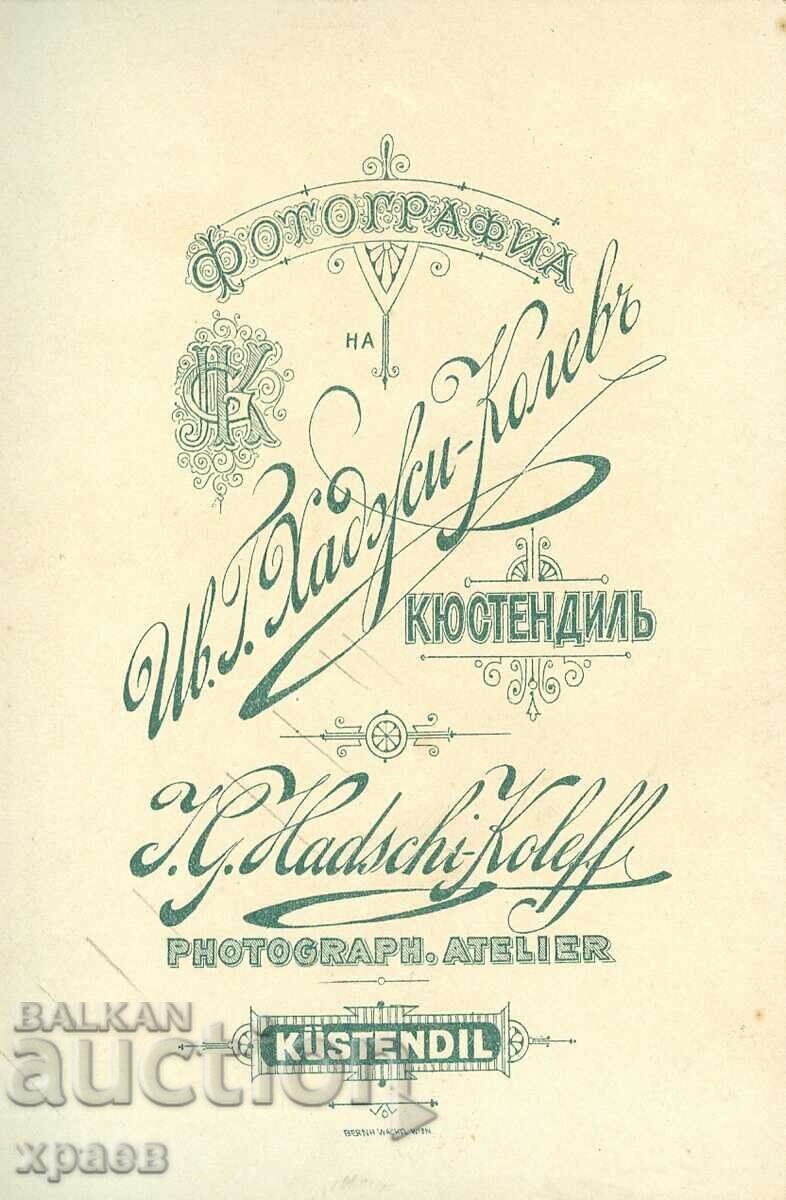 ФОТОГРАФИА
НА
Ив. Г. Хаджи-Колевъ
КЮСТЕНДИЛЬ
J. G. Hadschi-Koleff
PHOTOGRAPH. ATELIER
KÜSTENDIL
BERNH WACHTL WIEN
BALKAN
auction
храев